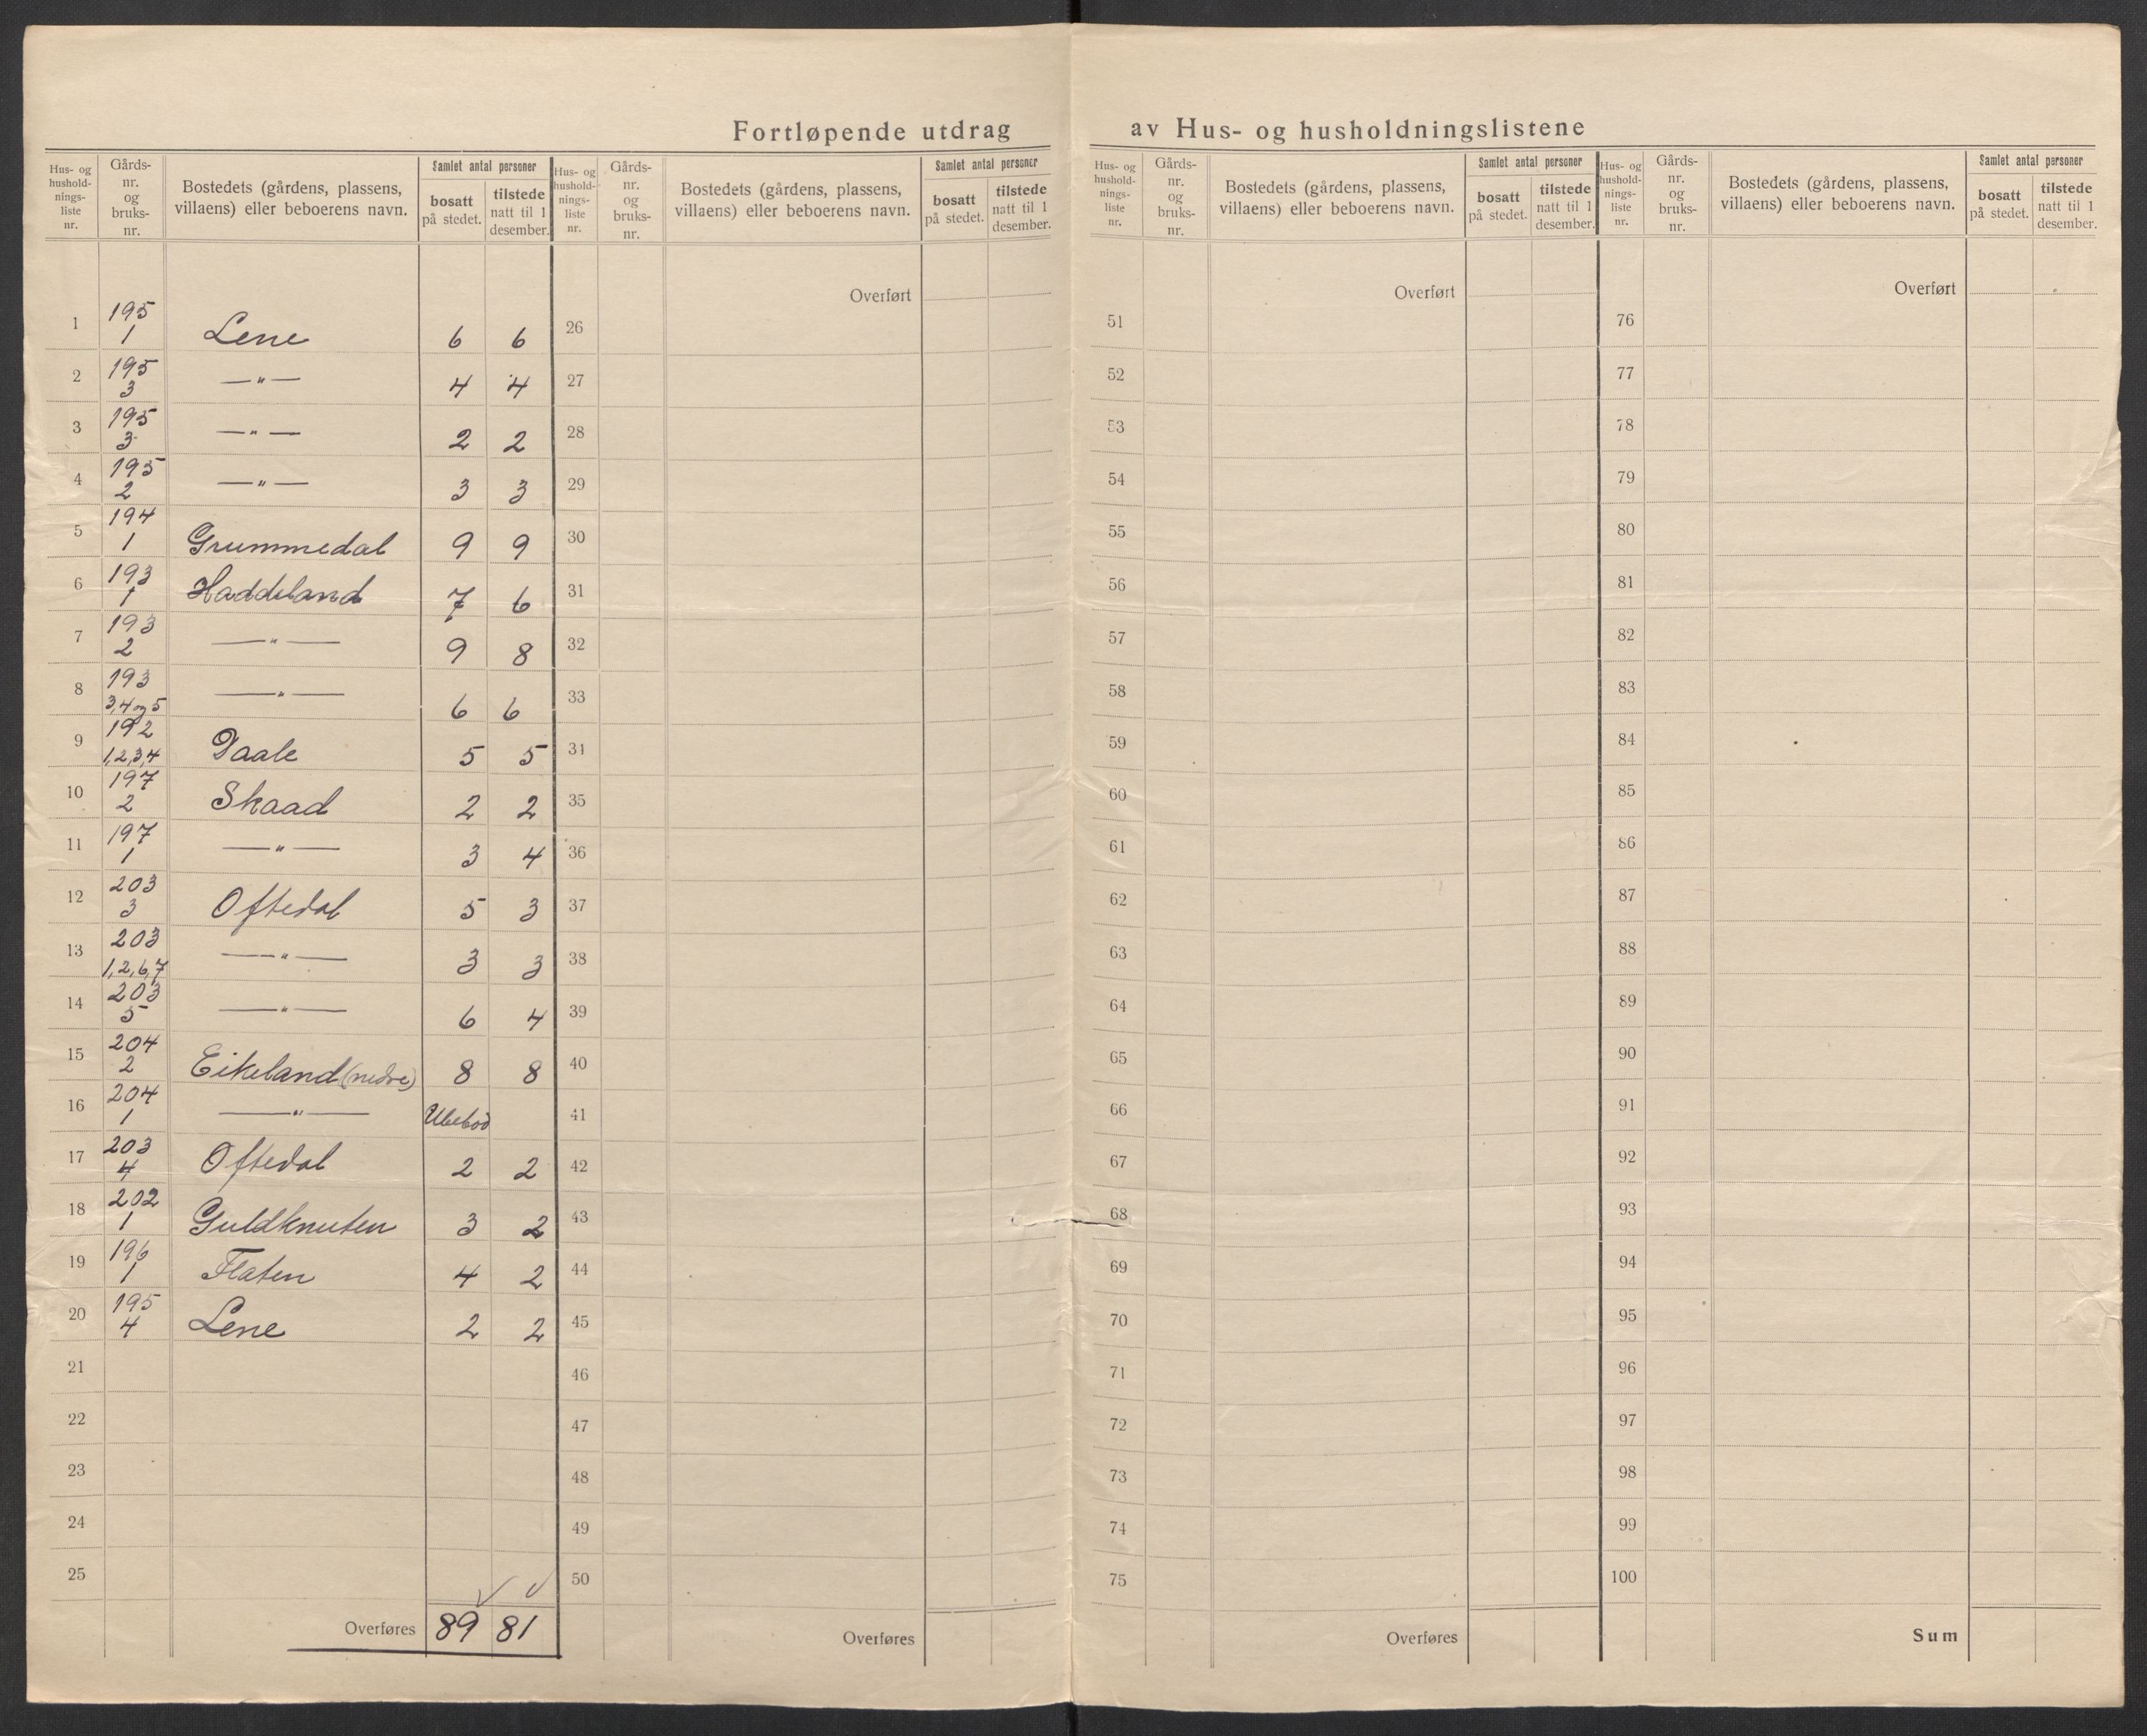 Fortløpende utdrag av Hus- og husholdningslistene
Hus- og hushold- nings- liste nr. | Gårds- nr. og bruks- nr. | Bostedets (gårdens, plassens, villaens) eller beboerens navn. | Samlet antal personer | bosatt på stedet. | tilstede natt til 1 desember.
1 195 1 Lene 6 6
2 195 3 —"— 4 4
3 195 3 —"— 2 2
4 195 2 —"— 3 3
5 194 1 Grummedal 9 9
6 193 1 Haddeland 7 6
7 193 2 —"— 9 8
8 193 3,4 og 5 —"— 6 6
9 192 1,2,3,4 Daale 5 5
10 197 2 Skaad 2 2
11 197 1 —"— 3 4
12 203 3 Oftedal 5 3
13 203 1,2,6,7 —"— 3 3
14 203 5 —"— 6 4
15 204 2 Eikeland (nedre) 8 8
16 204 1 —"— Ubebod
17 203 4 Oftedal 2 2
18 202 1 Guldknuten 3 2
19 196 1 Flaten 4 2
20 195 4 Lene 2 2
21
22
23
24
25
Overføres 89 81
Hus- og hushold- nings- liste nr. | Gårds- nr. og bruks- nr. | Bostedets (gårdens, plassens, villaens) eller beboerens navn. | Samlet antal personer | bosatt på stedet. | tilstede natt til 1 desember.
Overført
26
27
28
29
30
31
32
33
31
35
36
37
38
39
40
41
42
43
44
45
46
47
48
49
50
Overføres
Hus- og hushold- nings- liste nr. | Gårds- nr. og bruks- nr. | Bostedets (gårdens, plassens, villaens) eller beboerens navn. | Samlet antal personer | bosatt på stedet. | tilstede natt til 1 desember.
Overført
51
52
53
54
55
56
57
58
59
60
61
62
63
64
65
66
67
68
69
70
71
72
73
74
75
Overføres
Hus- og hushold- nings- liste nr. | Gårds- nr. og bruks- nr. | Bostedets (gårdens, plassens, villaens) eller beboerens navn. | Samlet antal personer | bosatt på stedet. | tilstede natt til 1 desember.
Overført
76
77
78
79
80
81
82
83
84
85
86
87
88
89
90
91
92
93
94
95
96
97
98
99
100
Sum